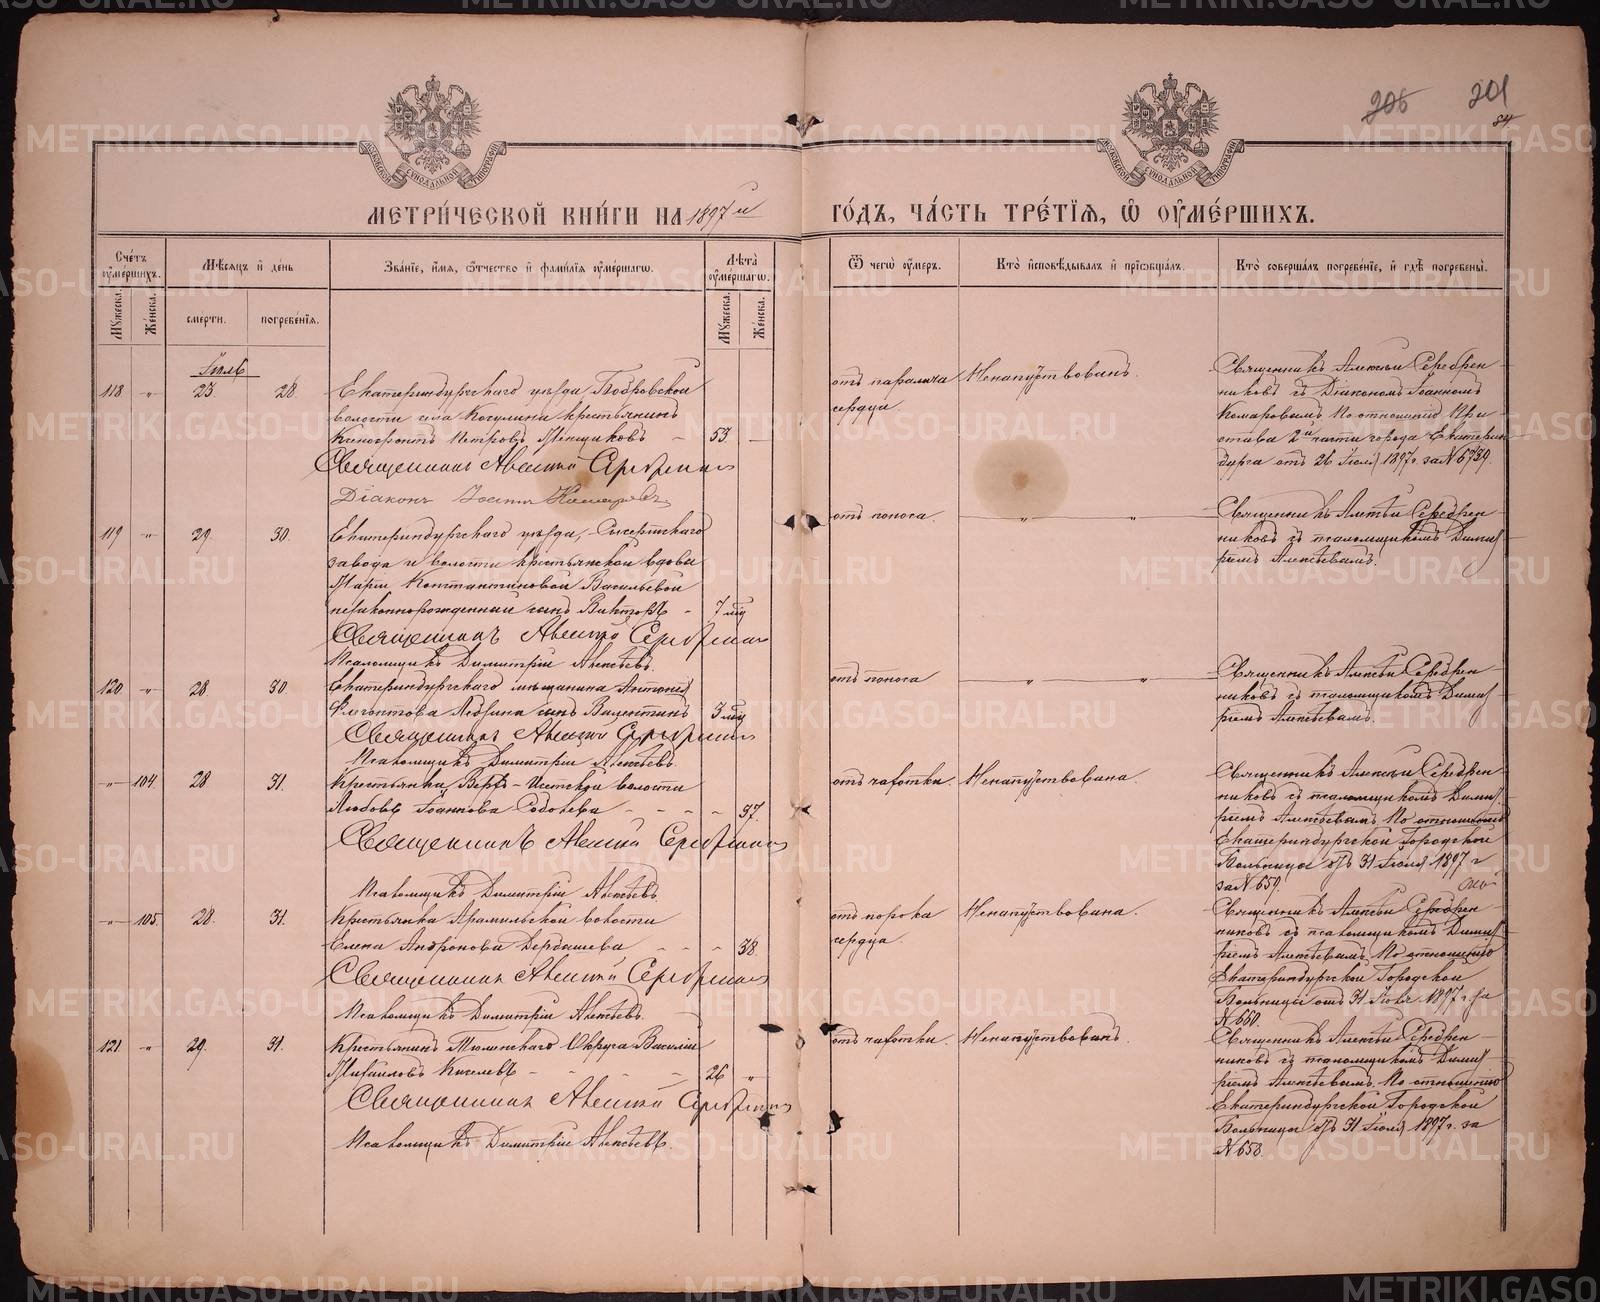 206 201
84
МЕТРИ́ЧЕСКОЙ КНИ́ГИ НА 1897 й ГО́ДЪ, ЧА́СТЬ ТРЕ́ТІѦ, Ѽ ОУ҆МЕ́РШИХЪ.
Сче́тъ оу҆ме́ршихъ.
Мѣ́сяцъ и҆ де́нь
Зва́нїе, и҆́мѧ, ѻ҆́тчество и҆ фами́лїѧ оу҆ме́ршагѡ.
Лѣ́та оу҆ме́ршагѡ.
Ѿ чегѡ̀ оу҆́меръ.
Кто̀ и҆сповѣ́дывалъ и҆ прїѡбща́лъ.
Кто̀ соверша́лъ погребе́нїе, и҆ гдѣ̀ погребены̀.
Му́жеска.
Же́нска.
сме́рти.
погребе́нїѧ.
Му́жеска.
Же́нска.
Іюль
118 " 23 28
Екатеринбургскаго уѣзда
волости села Косулина крестьянинъ
Ксенофонтъ Петровъ 53
Священникъ Алексій Серебрен
Діаконъ Іоаннъ Комаровъ
отъ паралича
сердца
Ненапутствованъ.
Священникъ Алексѣй Серебрен
никовъ съ Діакономъ Іоанномъ
Комаровымъ. По отношенію При
става 2й части города Екатерин
бурга отъ 26 Іюля 1897 г. за № 6739.
119 " 29 30
Екатеринбургскаго уѣзда, Сысертскаго
завода и волости крестьянской вдовы
Маріи Константиновой Васильевой
незаконнорожденный сынъ Викторъ - 7 мѣц
Священникъ Алексій Серебрен
Псаломщикъ Димитрій Алексѣевъ.
отъ поноса. " "
Священникъ Алексѣй Серебрен
никовъ съ псаломщикомъ Димит
ріемъ Алексѣевымъ.
120 " 28 30
Екатеринбургскаго мѣщанина Антонія
сынъ Валентинъ 3 мѣц
Священникъ Алексій Серебрен
Псаломщикъ Димитрій Алексѣевъ.
отъ поноса " "
Священникъ Алексѣй Серебрен
никовъ съ псаломщикомъ Димит
ріемъ Алексѣевымъ.
" 104 28 31.
Крестьянка Верхъ-Исетской волости
Любовь Іоаннова - - - - 37.
Священникъ Алексій Серебрен
Псаломщикъ Димитрій Алексѣевъ.
отъ чахотки.
Ненапутствована.
Священникъ Алексѣй Серебрен
никовъ съ псаломщикомъ Димит
ріемъ Алексѣевымъ. По отношенію
Екатеринбургской Городской
Больницы отъ 31 Іюля 1897 г
за № 659.
" 105. 28. 31.
Крестьянка Арамильской волости
Елена Андронова Дербышева - - - 38.
Священникъ Алексій Серебрен
Псаломщикъ Димитрій Алексѣевъ.
отъ порока
сердца.
Ненапутствована.
Священникъ Алексѣй Серебрен
никовъ съ псаломщикомъ Димит
ріемъ Алексѣевымъ. По отношенію
Екатеринбургской Городской
Больницы отъ 31 Іюля 1897 г. за
№ 660.
121. " 29. 31.
Крестьянинъ Тюменскаго Округа Василій
Михайловъ Киселевъ - - - - 26 "
Священникъ Алексій Серебрен
Псаломщикъ Димитрій Алексѣевъ.
отъ чахотки.
Ненапутствованъ.
Священникъ Алексѣй Серебрен
никовъ съ псаломщикомъ Димит
ріемъ Алексѣевымъ. По отношенію
Екатеринбургской Городской
Больницы отъ 31 Іюля 1897 г. за
№ 658.
METRIKI.GASO-URAL.RU